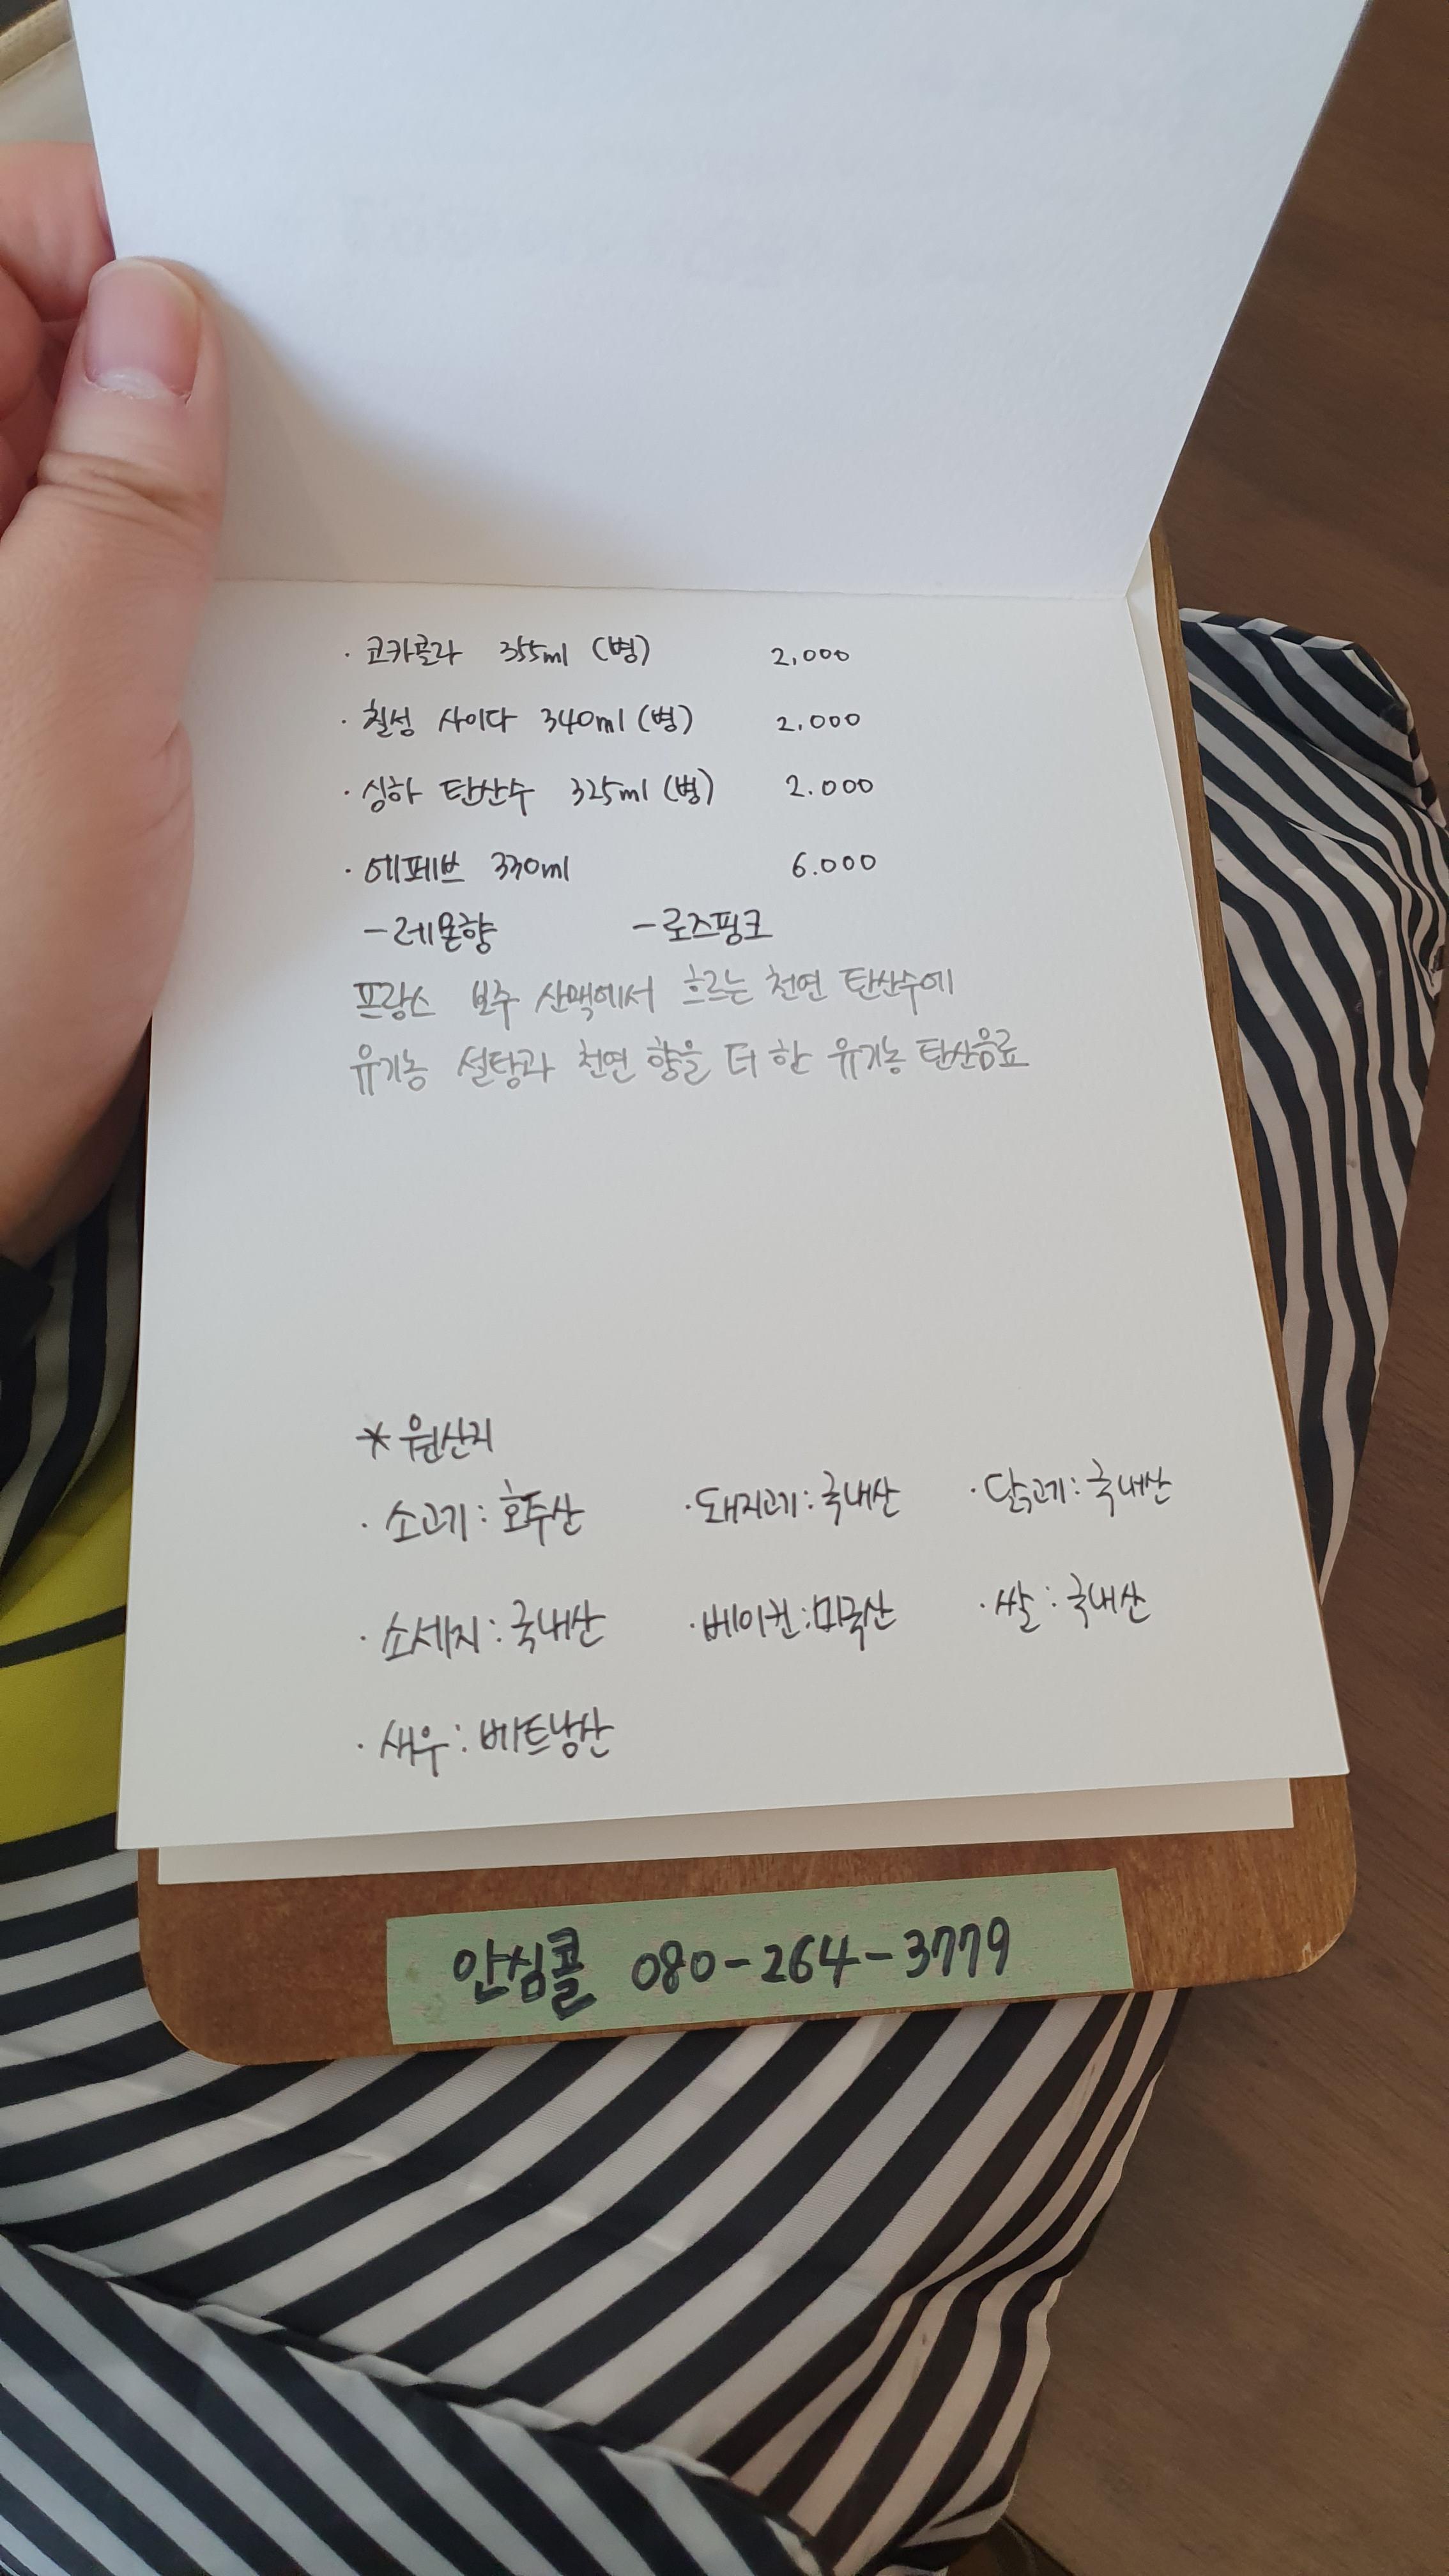 · 코카콜라 355ml (병) 2,000
· 칠성 사이다 340ml (병) 2,000
· 싱하 탄산수 325ml (병) 2.000
· 에페브 330ml 6.000
- 레몬향 - 로즈핑크
프랑스 보주 산맥에서 흐르는 천연 탄산수에
유기농 설탕과 천연 향을 더 한 유기농 탄산음료
* 원산지
· 소고기 : 호주산 · 돼지고기 : 국내산 · 닭고기 : 국내산
· 소세지 : 국내산 · 베이컨 : 미국산 · 쌀 : 국내산
· 새우 : 베트남산
안심콜 080-264-3779